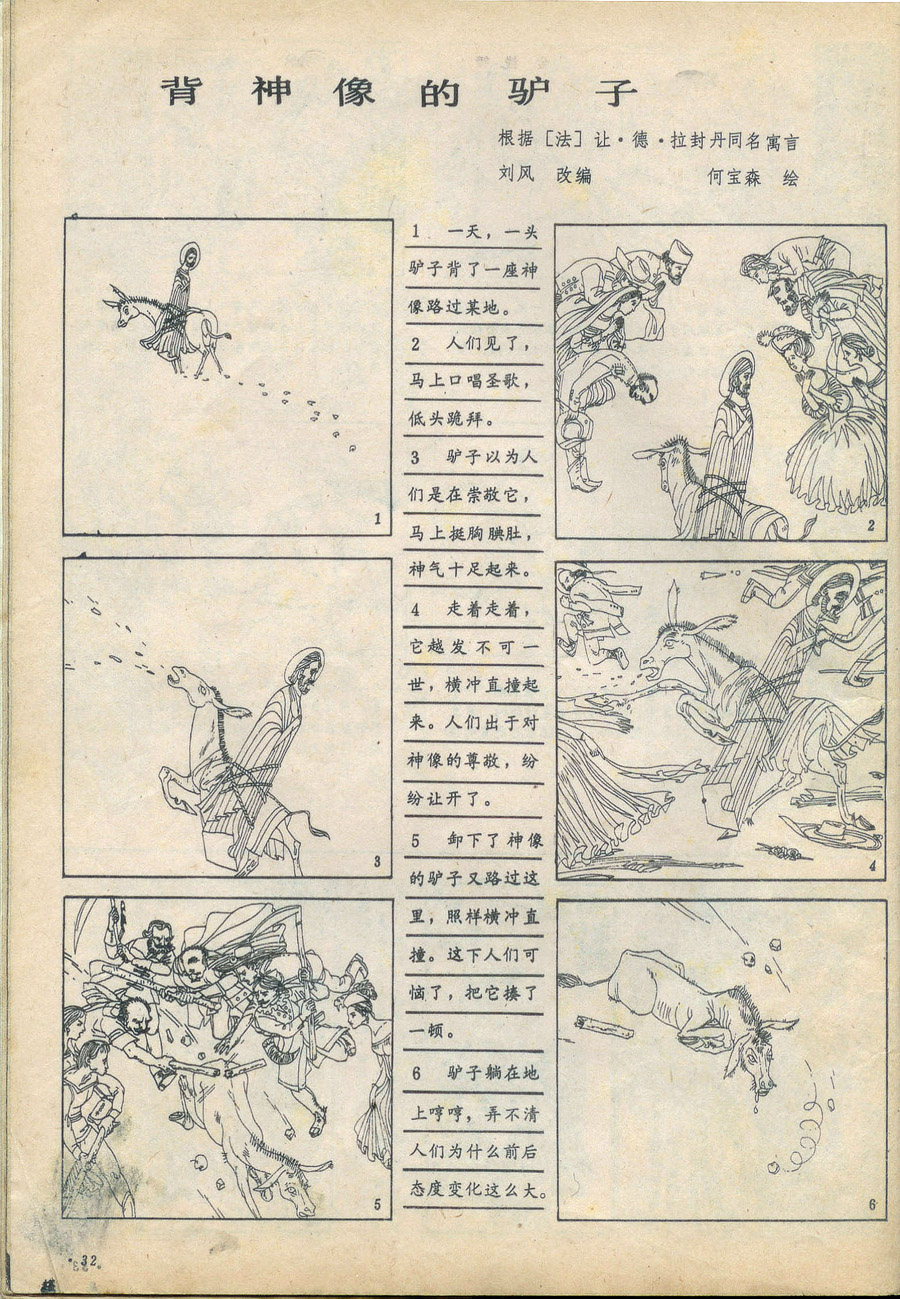 背神像的驴子
根据［法］让·德·拉封丹同名寓言
刘风 改编 何宝森 绘
1 一天，一头
驴子背了一座神
像路过某地。
2 人们见了，
马上口唱圣歌，
低头跪拜。
3 驴子以为人
们是在崇敬它，
马上挺胸腆肚，
神气十足起来。
4 走着走着，
它越发不可一
世，横冲直撞起
来。人们出于对
神像的尊敬，纷
纷让开了。
5 卸下了神像
的驴子又路过这
里，照样横冲直
撞。这下人们可
恼了，把它揍了
一顿。
6 驴子躺在地
上哼哼，弄不清
人们为什么前后
态度变化这么大。
1
2
3
4
5
6
·32·